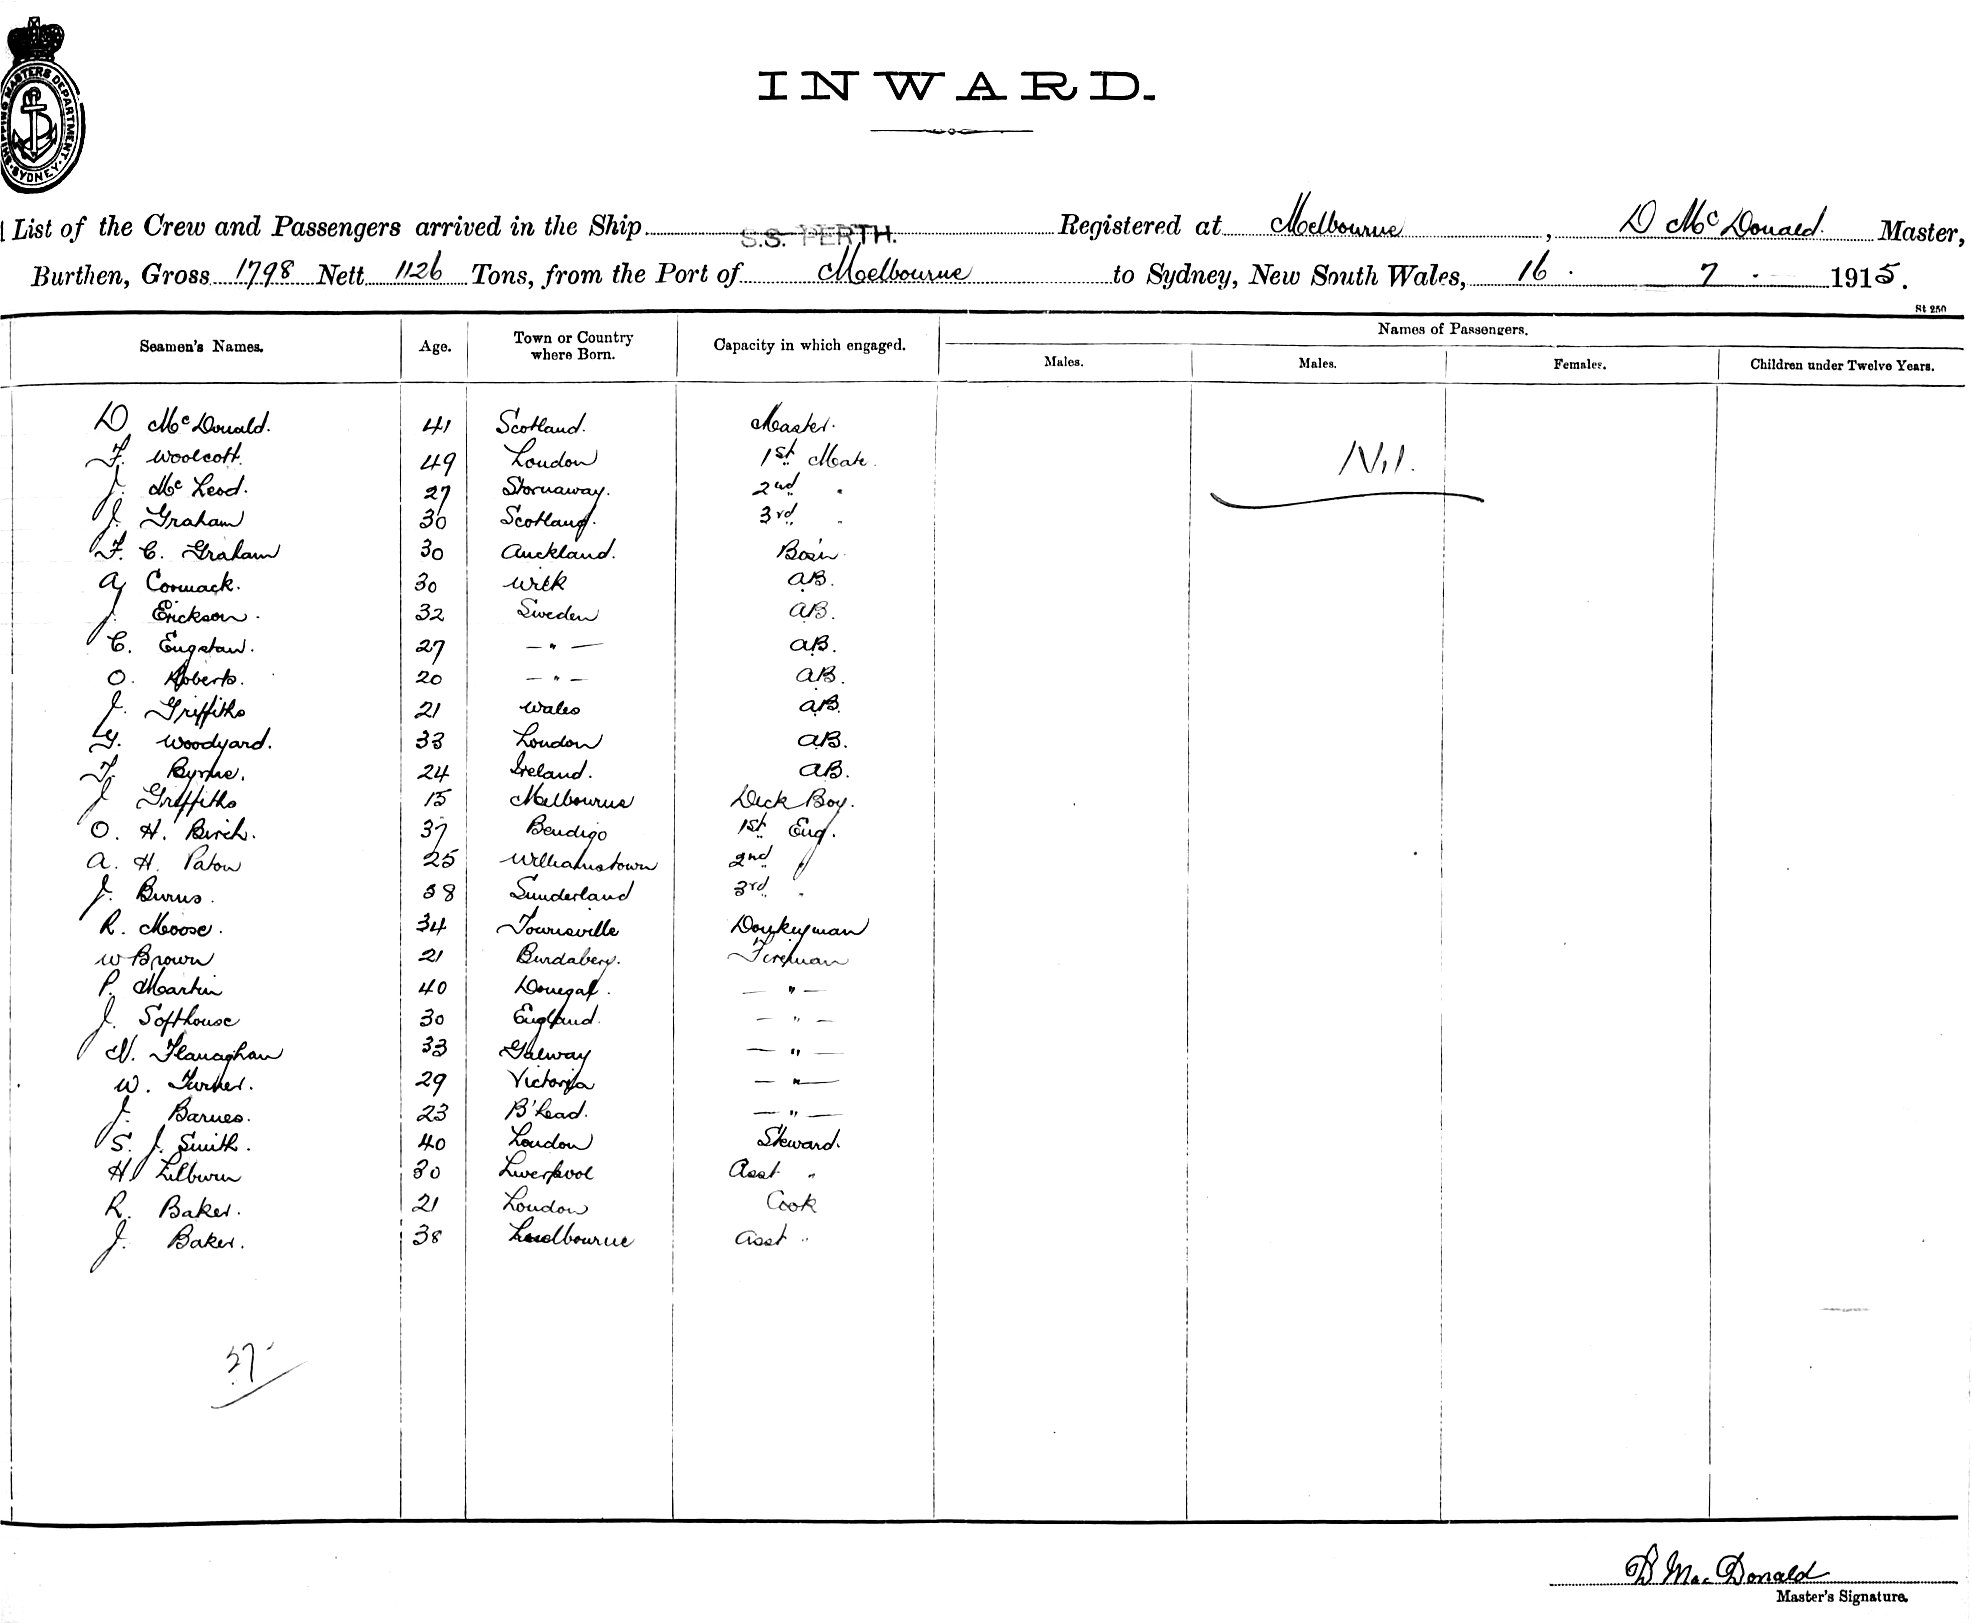 SHIPPING MASTERS DEPARTMENT. SYDNEY.
INWARD.
List of the Crew and Passengers arrived in the Ship S.S. PERTH. Registered at Melbourne, D McDonald. Master,
Burthen, Gross 1798 Nett 1126 Tons, from the Port of Melbourne to Sydney, New South Wales, 16. 7. 1915.
St 250
Seamen's Names. Age. Town or Country where Born. Capacity in which engaged. Names of Passengers.
Males. Males. Females. Children under Twelve Years.
D McDonald. 41 Scotland. Master.
F. Woolcott. 49 London 1st Mate.
J. McLeod. 27 Stornaway. 2nd "
J. Graham 30 Scotland. 3rd "
F. C. Graham 30 Auckland. Bos'n
A Cormack. 30 Wick AB.
J. Erickson. 32 Sweden AB.
C. Engstan. 27 — " — AB.
O. Roberts. 20 — " — AB.
J. Griffiths 21 Wales AB.
G. Woodyard. 33 London AB.
T. Byrne. 24 Ireland. AB.
J Griffiths 15 Melbourne Deck Boy.
O. H. Birch. 37 Bendigo 1st Eng.
A. H. Paton 25 Williamstown 2nd "
J. Burns. 38 Sunderland 3rd "
R. Moose. 34 Townsville Donkeyman
W Brown 21 Bundaberg. Fireman
P. Martin 40 Donegal. — " —
J. Softhouse 30 England. — " —
N. Flanaghan 33 Galway — " —
W. Turner. 29 Victoria — " —
J. Barnes. 23 B'head. — " —
S. J. Smith. 40 London Steward.
H Lilburn 30 Liverpool Asst "
R. Baker. 21 London Cook
J. Baker. 38 Melbourne Asst "
Nil.
27
D MacDonald
Master's Signature.